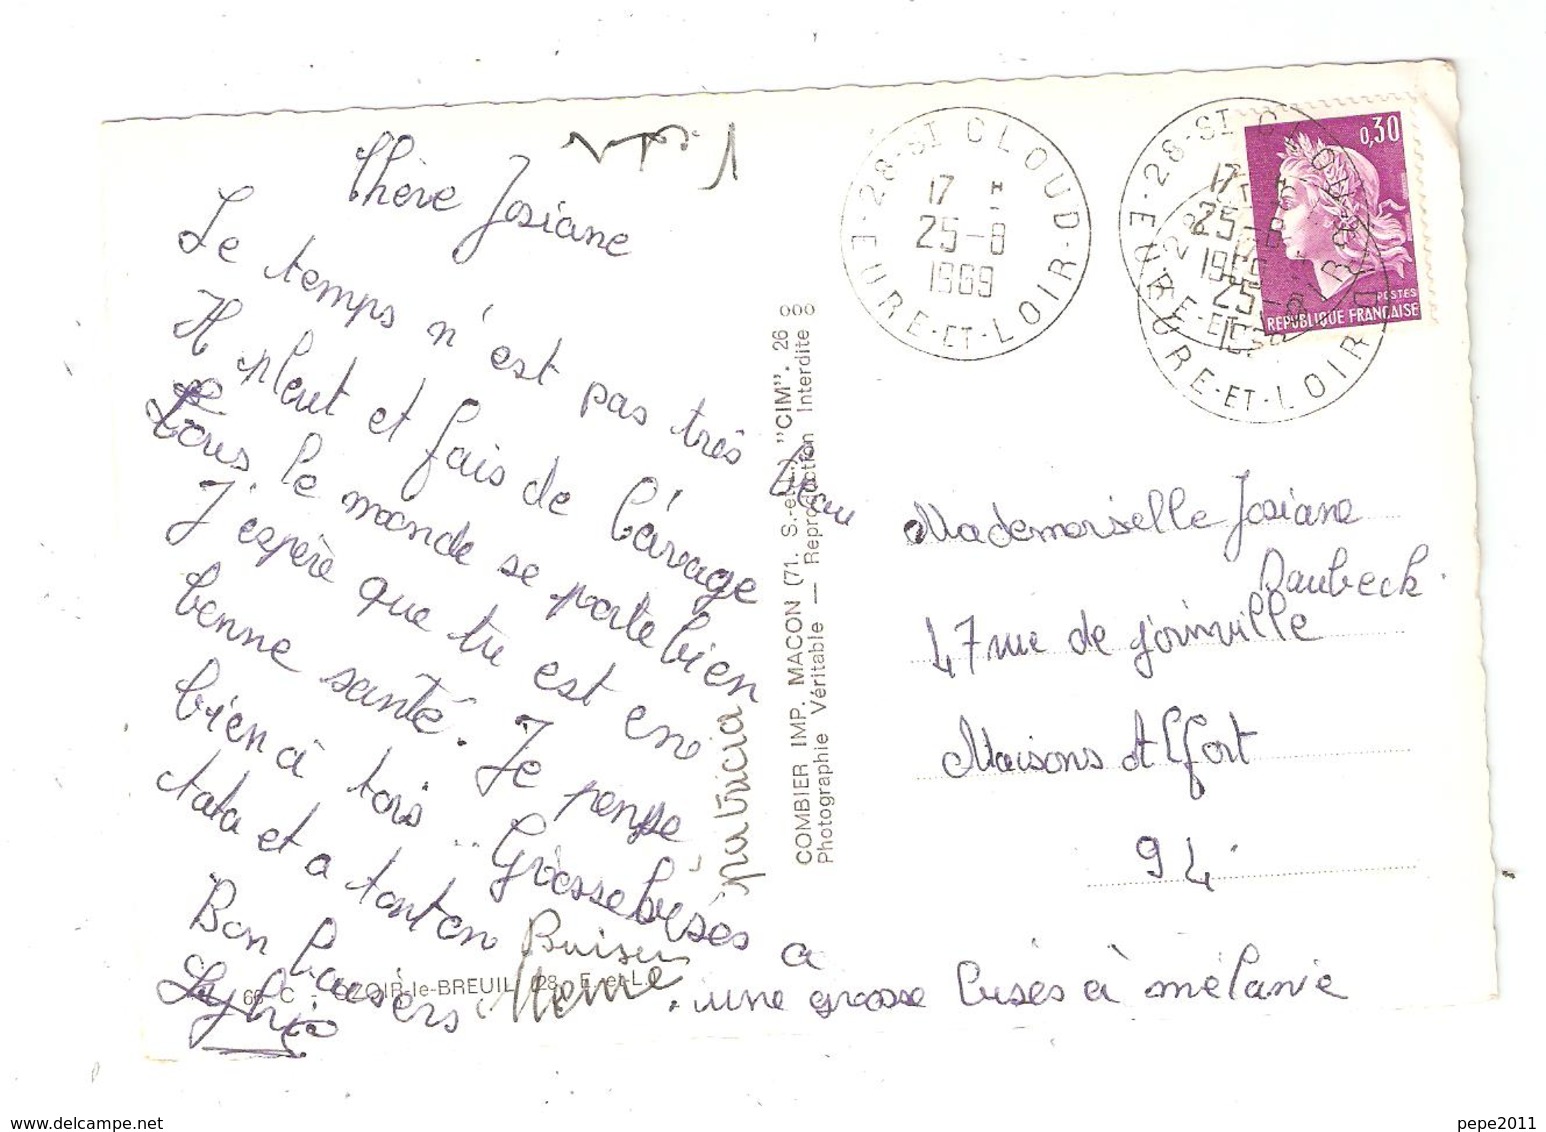 Chère Josiane
Le temps n'est pas très beau
Il pleut et fais de l'árage
Tous le monde se porte bien
J'espère que tu est en
bonne santé. Je pense
bien à tois. Grosse bises a
tata et a tonton
Bon baisers
Sylvie
patricia
Meme
. une grosse bises à mélanie
66 C - OZOIR-le-BREUIL (28 - E.-et-L.)
COMBIER IMP. MACON (71. S.-et-L.) "CIM". 26
Photographie Véritable — Reproduction Interdite
28 - ST CLOUD
17 H
25-8
1969
EURE-ET-LOIR
28 - ST CLOUD
17 H
25-8
1969
EURE-ET-LOIR
0,30
POSTES
REPUBLIQUE FRANÇAISE
Mademoiselle Josiane
Daubeck.
47 rue de joinville
Maisons Alfort
94
www.delcampe.net
pepe2011